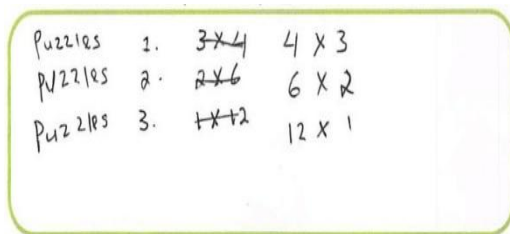 Puzzles 1. 3x4 4 x 3
Puzzles 2. 2x6 6 x 2
Puzzles 3. 1x12 12 x 1